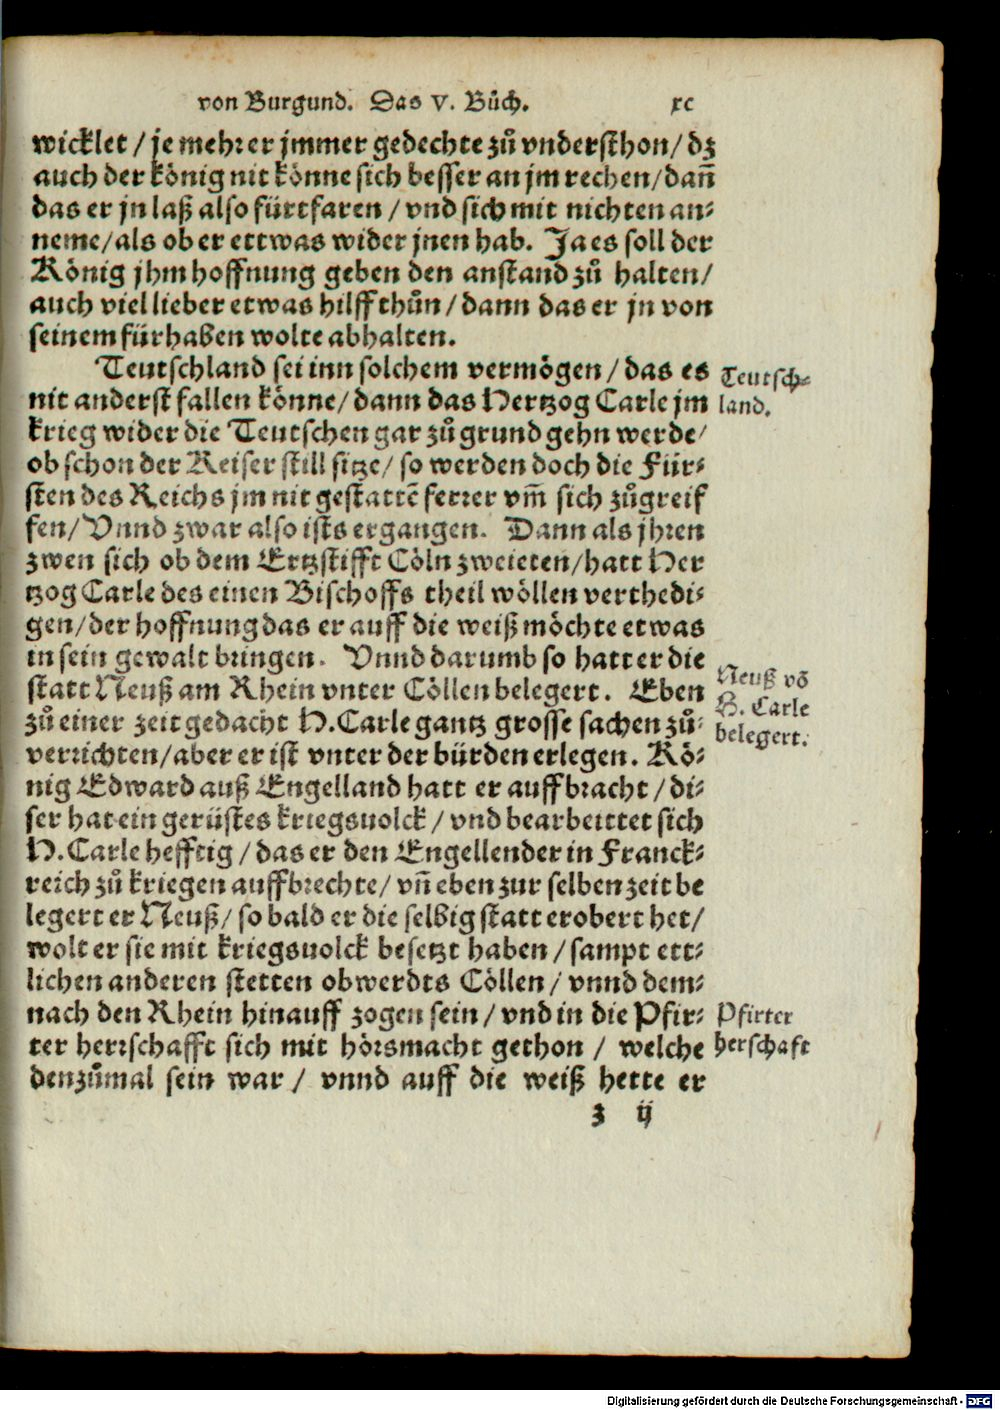 von Burgund. Das V. Bůch. xc
wicklet / je mehr er jmmer gedechte zů vndersthon / dz
auch der könig nit könne sich besser an jm rechen / dañ
das er jn laß also fürtfaren / vnd sich mit nichten an⸗
neme / als ob er ettwas wider jnen hab. Ja es soll der
König jhm hoffnung geben den anstand zů halten /
auch viel lieber etwas hilff thůn / dann das er jn von
seinem fürhaben wolte abhalten.
Teutschland sei inn solchem vermögen / das es
nit anderst fallen könne / dann das Hertzog Carle jm
krieg wider die Teutschen gar zů grund gehn werde /
ob schon der Keiser still sitze / so werden doch die Für⸗
sten des Reichs jm nit gestattē ferrer vm̃ sich zůgreif
fen / Vnnd zwar also ists ergangen. Dann als jhren
zwen sich ob dem Ertzstifft Cöln zweieten / hatt Her
tzog Carle des einen Bischoffs theil wöllen verthedi⸗
gen / der hoffnung das er auff die weiß möchte etwas
in sein gewalt bringen. Vnnd darumb so hatt er die
statt Neuß am Rhein vnter Cöllen belegert. Eben
zů einer zeit gedacht H. Carle gantz grosse sachen zů⸗
verrichten / aber er ist vnter der bürden erlegen. Kö⸗
nig Edward auß Engelland hatt er auffbracht / di⸗
ser hat ein gerüstes kriegsuolck / vnd bearbeittet sich
H. Carle hefftig / das er den Engellender in Franck⸗
reich zů kriegen auffbrechte / vñ eben zur selben zeit be
legert er Neuß / so bald er die selbig statt erobert het /
wolt er sie mit kriegsuolck besetzt haben / sampt ett⸗
lichen anderen stetten obwerdts Cöllen / vnnd dem⸗
nach den Rhein hinauff zogen sein / vnd in die Pfir⸗
ter herrschafft sich mit hörsmacht gethon / welche
denzůmal sein war / vnnd auff die weiß hette er
z ij
Teutsch⸗
land.
Neuß võ
H. Carle
belegert.
Pfirter
herschaft
Digitalisierung gefördert durch die Deutsche Forschungsgemeinschaft - DFG